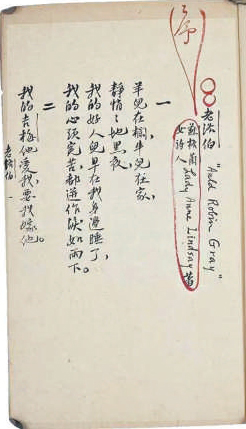 序
老洛伯 "Auld Robin Gray"
蘇格蘭
女詩人 Lady Anne Lindsay 著
一
羊兒在欄,牛兒在家,
靜悄〻地黑夜,
我的好人兒早在我身邊睡了,
我的心頭冤苦,都迸作淚如雨下。
二
我的吉梅他愛我,要我嫁他。
老洛伯 一